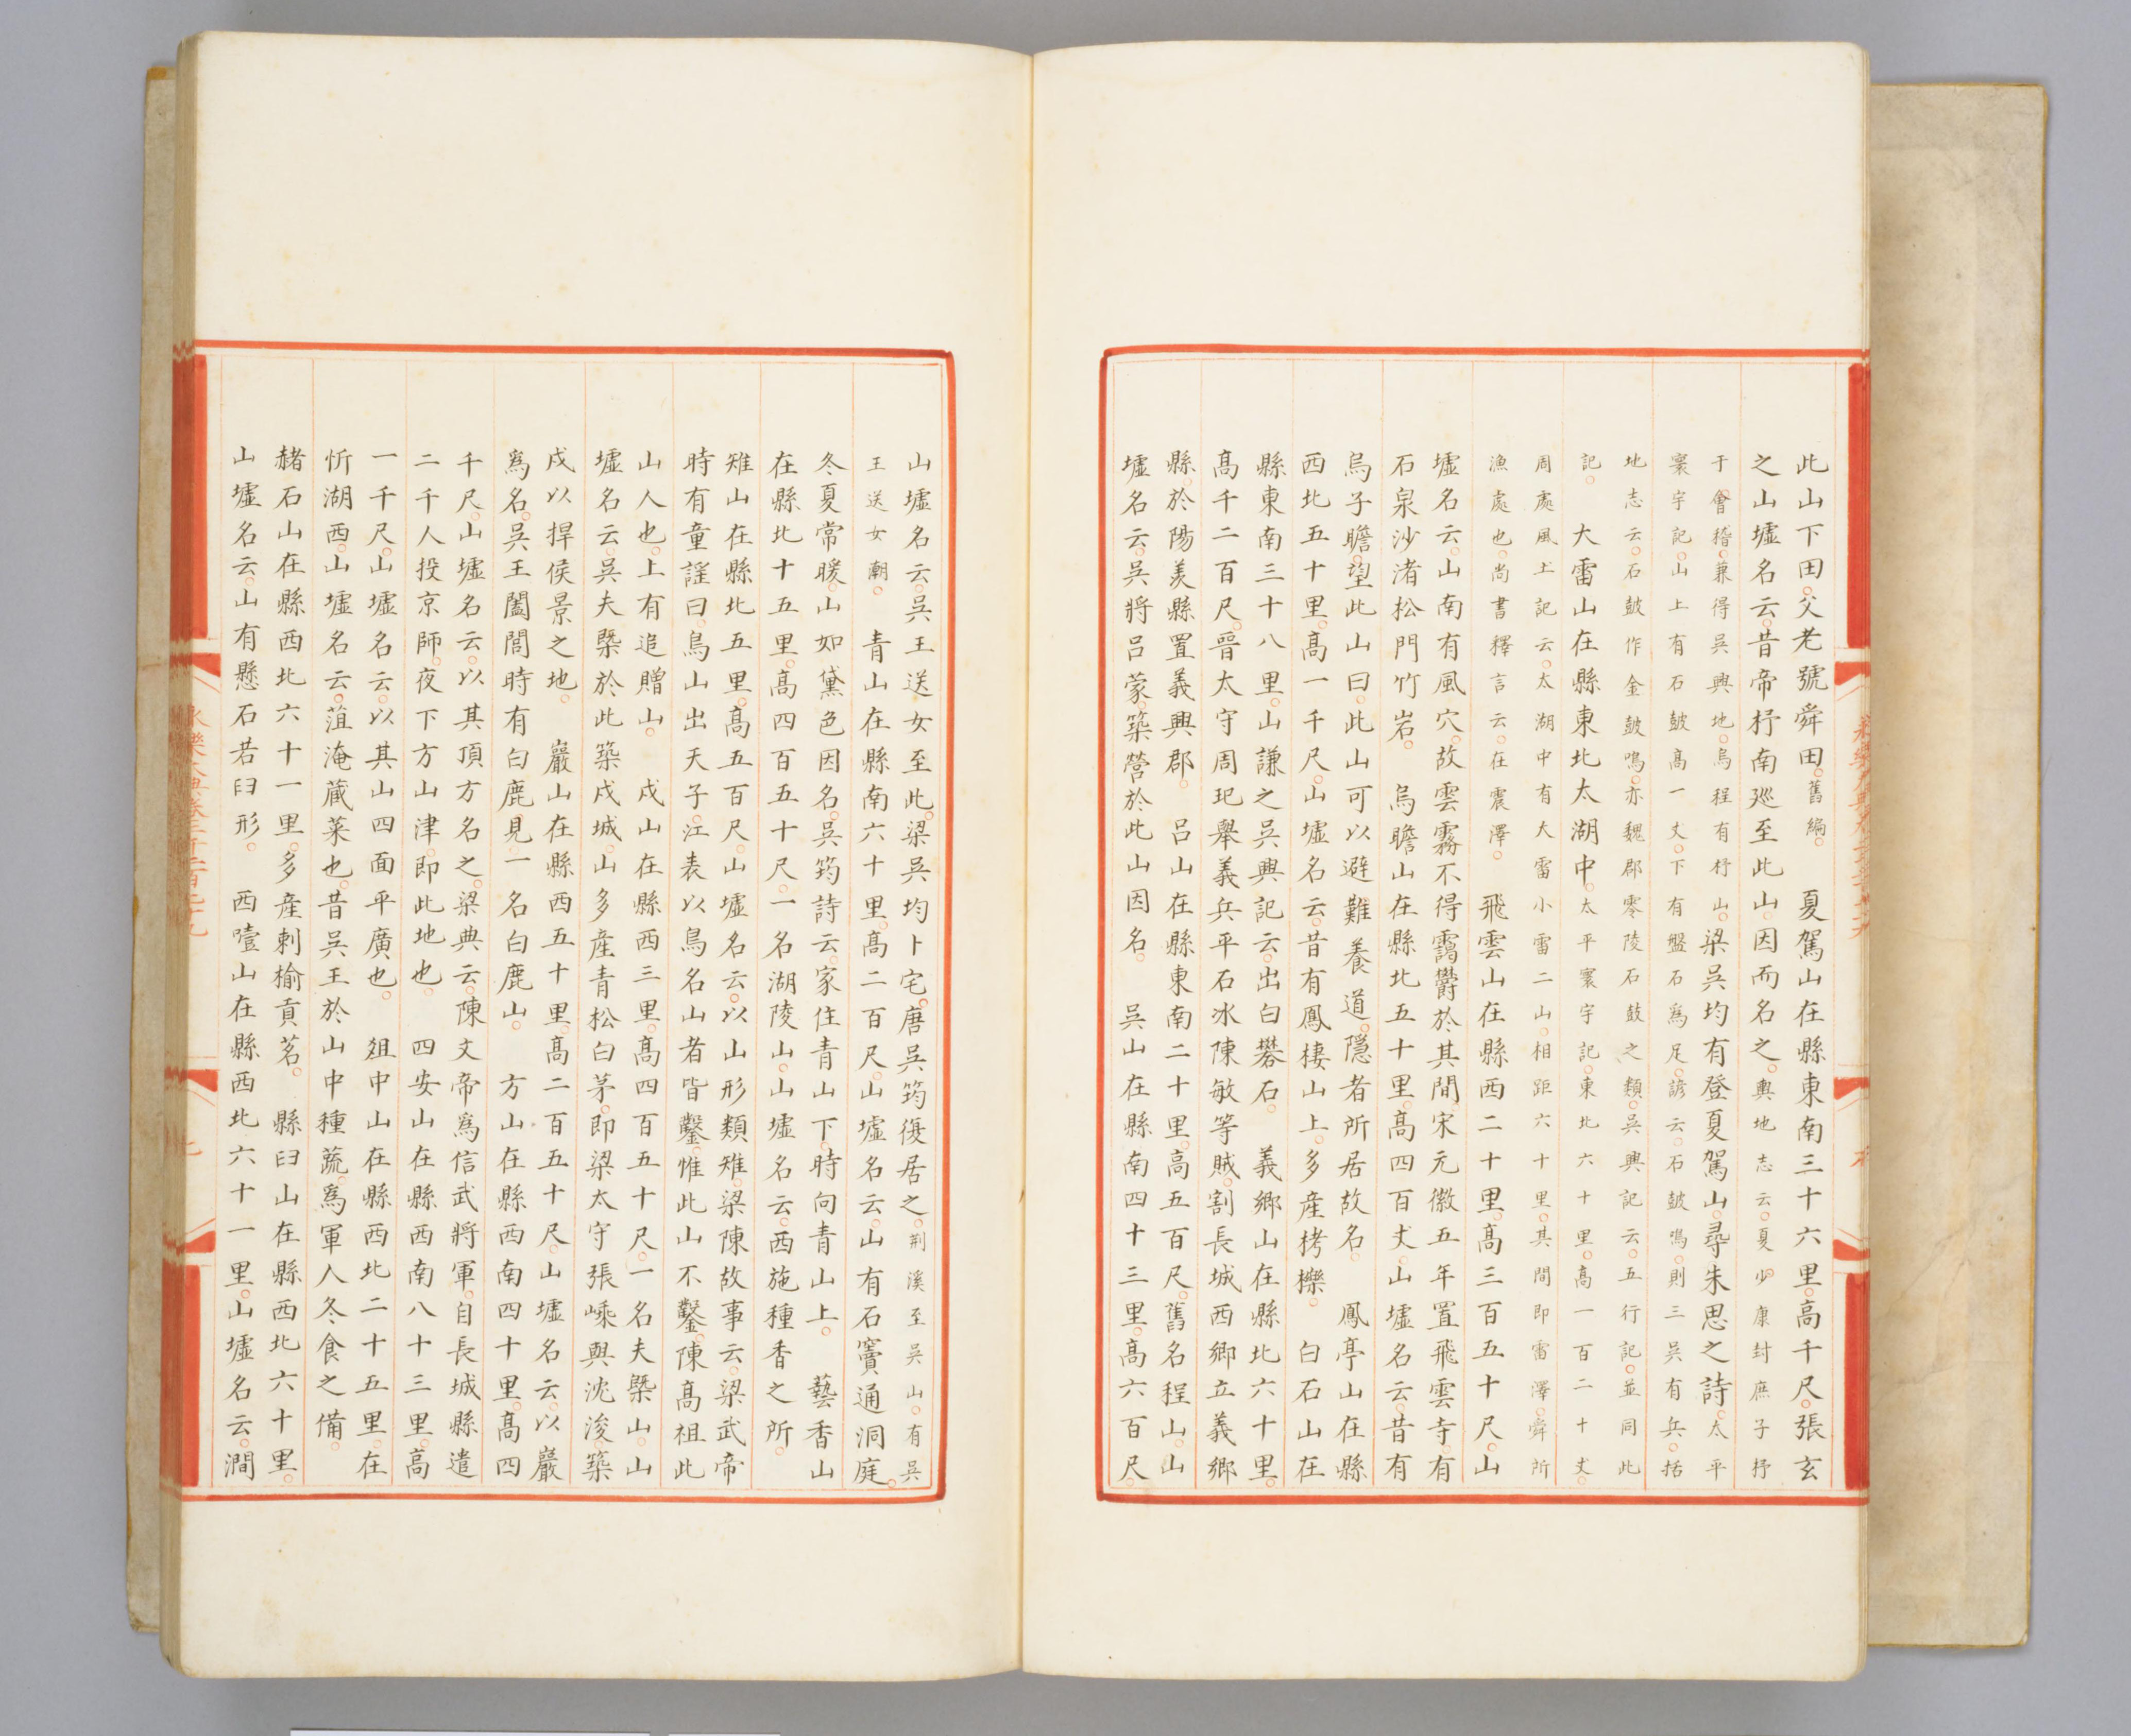 此山下田。父老號舜田。舊編。　夏駕山在縣東南三十六里。高千尺。張玄
之山墟名云。昔帝杼南廵至此山。因而名之。輿地志云。夏少康封庶子杼
于會稽。兼得吳興地。烏程有杼山。梁吳均有登夏駕山。尋朱思之詩。太平
寰宇記。山上有石皷高一丈。下有盤石爲足。諺云。石皷鳴。則三吳有兵。括
地志云。石皷作金皷鳴。亦魏郡零陵石鼓之類。吳興記云。五行記。並同此
記。　大雷山在縣東北太湖中。太平寰宇記。東北六十里。高一百二十丈。
周處風土記云。太湖中有大雷小雷二山。相距六十里。其間即雷澤。舜所
漁處也。尚書釋言云。在震澤。　飛雲山在縣西二十里。高三百五十尺。山
墟名云。山南有風穴。故雲霧不得靄鬱於其間。宋元徽五年置飛雲寺。有
石泉沙渚松門竹岩。　烏瞻山在縣北五十里。高四百丈。山墟名云。昔有
烏子瞻。望此山曰。此山可以避難養道。隱者所居故名。　鳳亭山在縣
西北五十里。高一千尺。山墟名云。昔有鳳棲山上。多產栲櫟。　白石山在
縣東南三十八里。山謙之吳興記云。出白礬石。　義鄉山在縣北六十里。
高千二百尺。晉太守周玘舉義兵平石冰陳敏等賊。割長城西鄉立義鄉
縣。於陽羨縣置義興郡。　呂山在縣東南二十里。高五百尺。舊名程山。山
墟名云。吳將呂蒙。築營於此山因名。　吳山在縣南四十三里。高六百尺。
山墟名云。吳王送女至此。梁吳均卜宅。唐吳筠復居之。荆溪至吳山。有吳
王送女潮。　青山在縣南六十里。高二百尺。山墟名云。山有石竇通洞庭。
冬夏常暖。山如黛色因名。吳筠詩云。家住青山下。時向青山上。　藝香山
在縣北十五里。高四百五十尺。一名湖陵山。山墟名云。西施種香之所。
雉山在縣北五里。高五百尺。山墟名云。以山形類雉。梁陳故事云。梁武帝
時有童謠曰。鳥山出天子。江表以鳥名山者皆鑿。惟此山不鑿。陳高祖此
山人也。上有追贈山。　戍山在縣西三里。高四百五十尺。一名夫槩山。山
墟名云。吳夫槩於此築戍城。山多產青松白茅。即梁太守張嵊與沈浚。築
戍以捍侯景之地。　巖山在縣西五十里。高二百五十尺。山墟名云。以巖
爲名。吳王闔閭時有白鹿見。一名白鹿山。　方山在縣西南四十里。高四
千尺。山墟名云。以其頂方名之。梁典云。陳文帝爲信武將軍。自長城縣遣
二千人投京師。夜下方山津。即此地也。　四安山在縣西南八十三里。高
一千尺。山墟名云。以其山四面平廣也。　爼中山在縣西北二十五里。在
忻湖西。山墟名云。葅淹蔵菜也。昔吳王於山中種蔬。爲軍人冬食之備。
赭石山在縣西北六十一里。多產刺榆貢茗。　縣臼山在縣西北六十里。
山墟名云。山有懸石若臼形。　西噎山在縣西北六十一里。山墟名云。澗